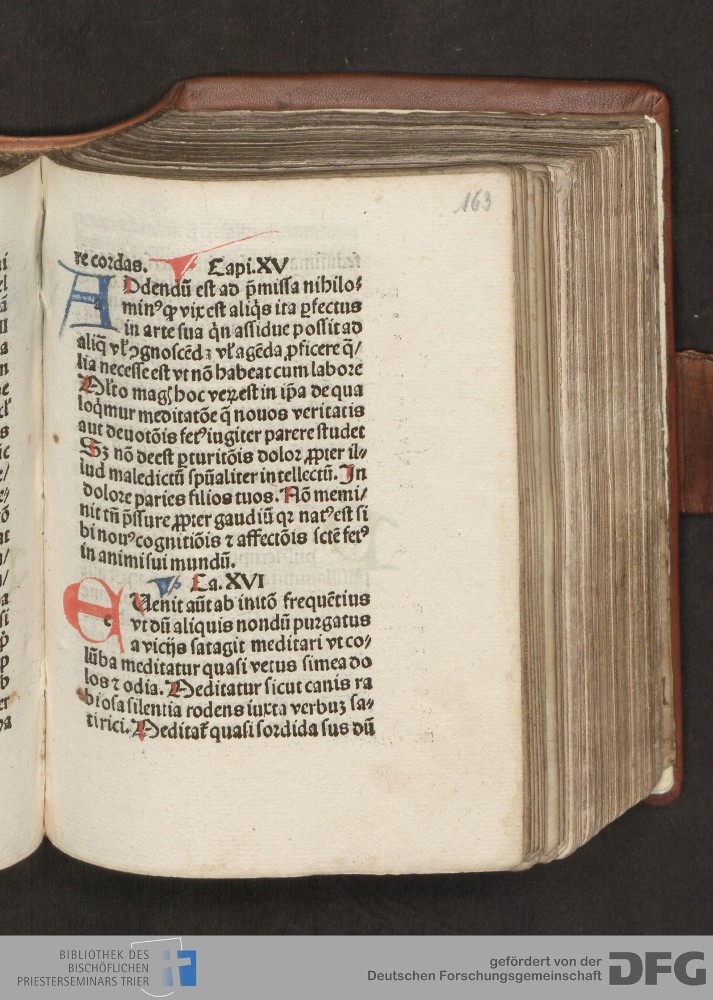 163
re cordas. Capi.XV
ADdendū est ad p̄missa nihilo⸗
minꝰ ꝙ vix est aliq̇s ita ꝑfectus
in arte sua q̇n assidue possit ad
aliq̄ vl̕ ꝯgnoscēdꝫ vl̕ agēda ꝓficere q̄/
lia necesse est vt nō habeat cum labore
Mlto mag̕ hoc veꝝ est in ip̄a de qua
loq̇mur meditatōe q̄ nouos veritatis
aut deuotōis fetꝰ iugiter parere studet
Sꝫ nō deest ꝑturitōis dolor ꝓpter il⸗
lud maledictū sp̄ualiter intellectū. In
dolore paries filios tuos. Nō memi/
nit tn̄ p̄ssure ꝓpter gaudiū qꝛ natꝰ est si
bi nouꝰ cognitiōis ⁊ affectōis sctē fetꝰ
in animi sui mundū.
Ca. XVI
EUenit aūt ab initō frequētius
vt dū aliquis nondū purgatus
a vicijs satagit meditari vt co⸗
lūba meditatur quasi vetus simea do
los ⁊ odia. Meditatur sicut canis ra
biosa silentia rodens iuxta verbuꝫ sa⸗
tirici. Meditat̄ quasi sordida sus dū
BIBLIOTHEK DES
BISCHÖFLICHEN
PRIESTERSEMINARS TRIER
gefördert von der
Deutschen Forschungsgemeinschaft DFG